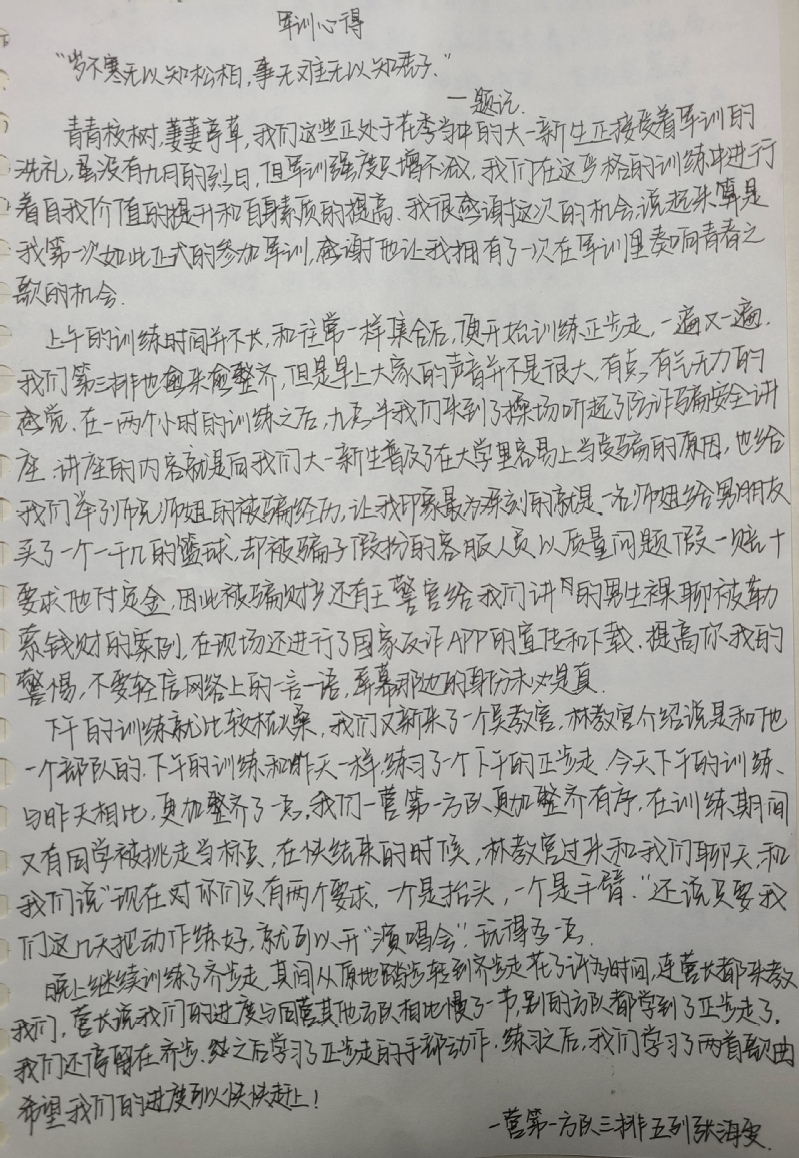 军训心得
“岁不寒无以知松柏，事无难无以知君子。”
—题记
青青校树，萋萋亭草，我们这些正处于花季当中的大一新生正接受着军训的
洗礼，虽没有九月的烈日，但军训强度只增不减，我们在这严格的训练中进行
着自我价值的提升和自身素质的提高、我很感谢这次的机会，说起来算是
我第一次如此正式的参加军训，感谢他让我拥有了一次在军训里奏响青春之
歌的机会.
上午的训练时间并不长，和往常一样集合后，便开始训练正步走，一遍又一遍.
我们第三排也愈来愈整齐，但是早上大家的声音并不是很大、有点有气无力的
感觉.在一两个小时的训练之后，九点半我们来到了操场听起了防诈骗安全讲
座.讲座的内容就是向我们大一新生普及了在大学里容易上当受骗的原因，也给
我们举了师兄师姐的被骗经历，让我印象最为深刻的就是一名师姐给男朋友
买了一个一千几的篮球，却被骗子假扮的客服人员以质量问题假一赔十
要求他付定金，因此被骗财步还有王警官给我们讲的男生裸聊被勒
索钱财的案例，在现场还进行了国家反诈APP的宣传和下载.提高你我的
警惕，不要轻信网络上的一言一语，屏幕那边的身份未必是真.
下午的训练就比较枯燥，我们又新来了一个吴教官，林教官介绍说是和他
一个部队的.下午的训练和昨天一样，练习了一个下午的正步走.今天下午的训练、
与昨天相比，更加整齐了一点，我们一营第一方队更加整齐有序，在训练期间
又有同学被挑走当标兵、在快结束的时候，林教官过来和我们聊天，和
我们说“现在对你们只有两个要求，一个是抬头，一个是手臂.”还说只要我
们这几天把动作练好，就可以开“演唱会”.玩得一点.
晚上继续训练了齐步走，其间从原地踏步转到齐步走花了许多时间，连营长都来教
我们，营长说我们的进度与同营其他方队相比慢了一节，别的方队都学到了正步走了，
我们还停留在齐步.之后学习了正步走的手部动作.练习之后，我们学习了两首歌曲
希望我们的进度可以快快赶上！
一营第一方队三排五列张海